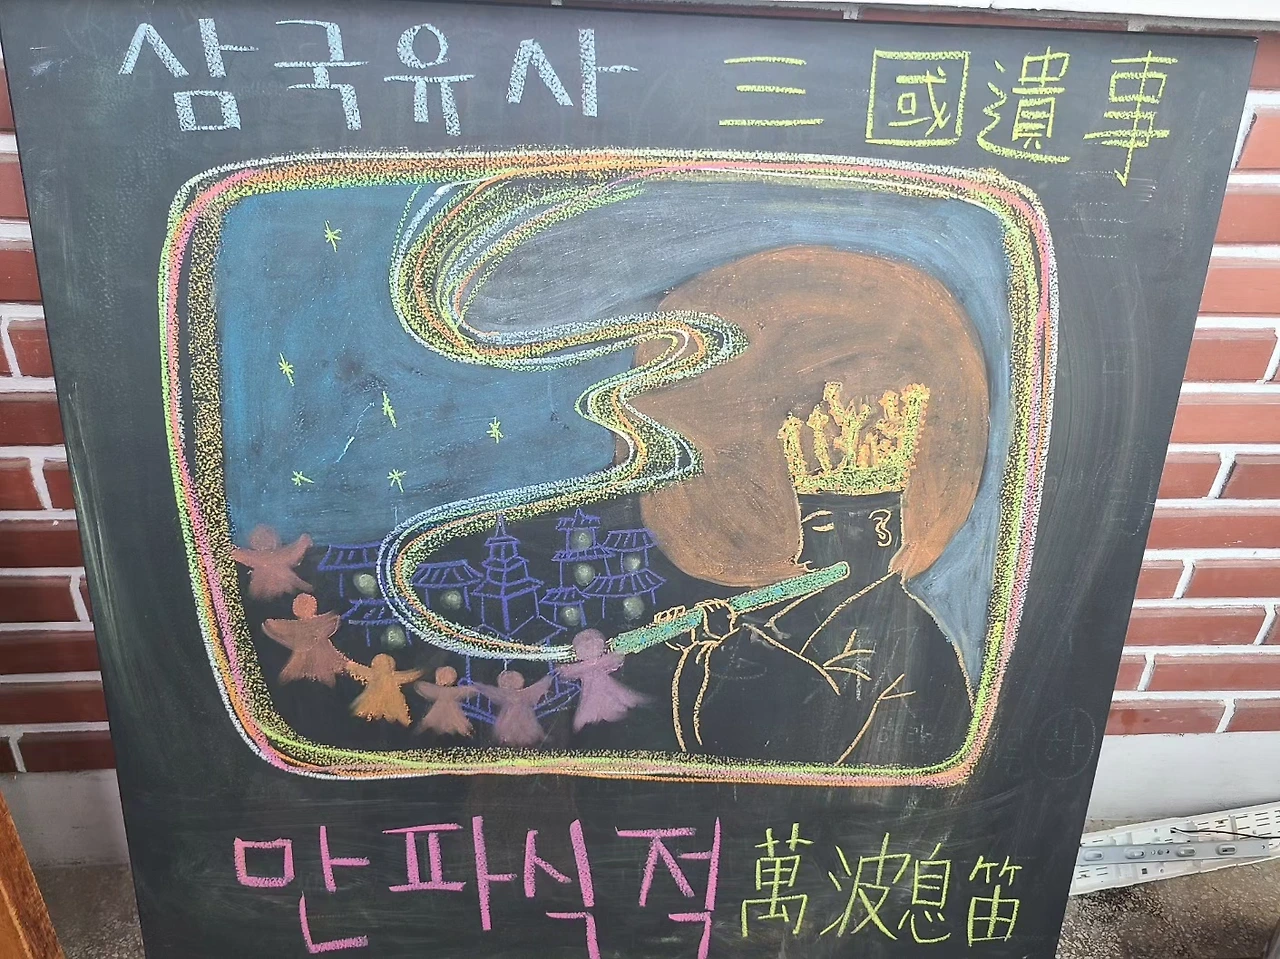 삼국유사 三國遺事
만파식적 萬波息笛